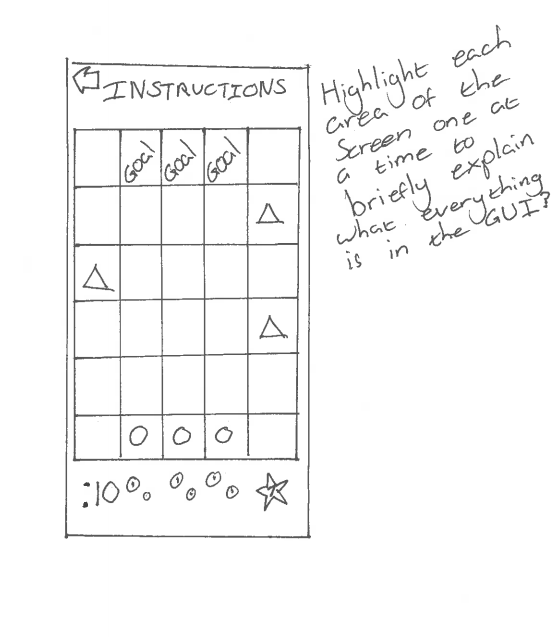 INSTRUCTIONS
Goal Goal Goal
:10
Highlight each
area of the
Screen one at
a time to
briefly explain
what everything
is in the GUI?